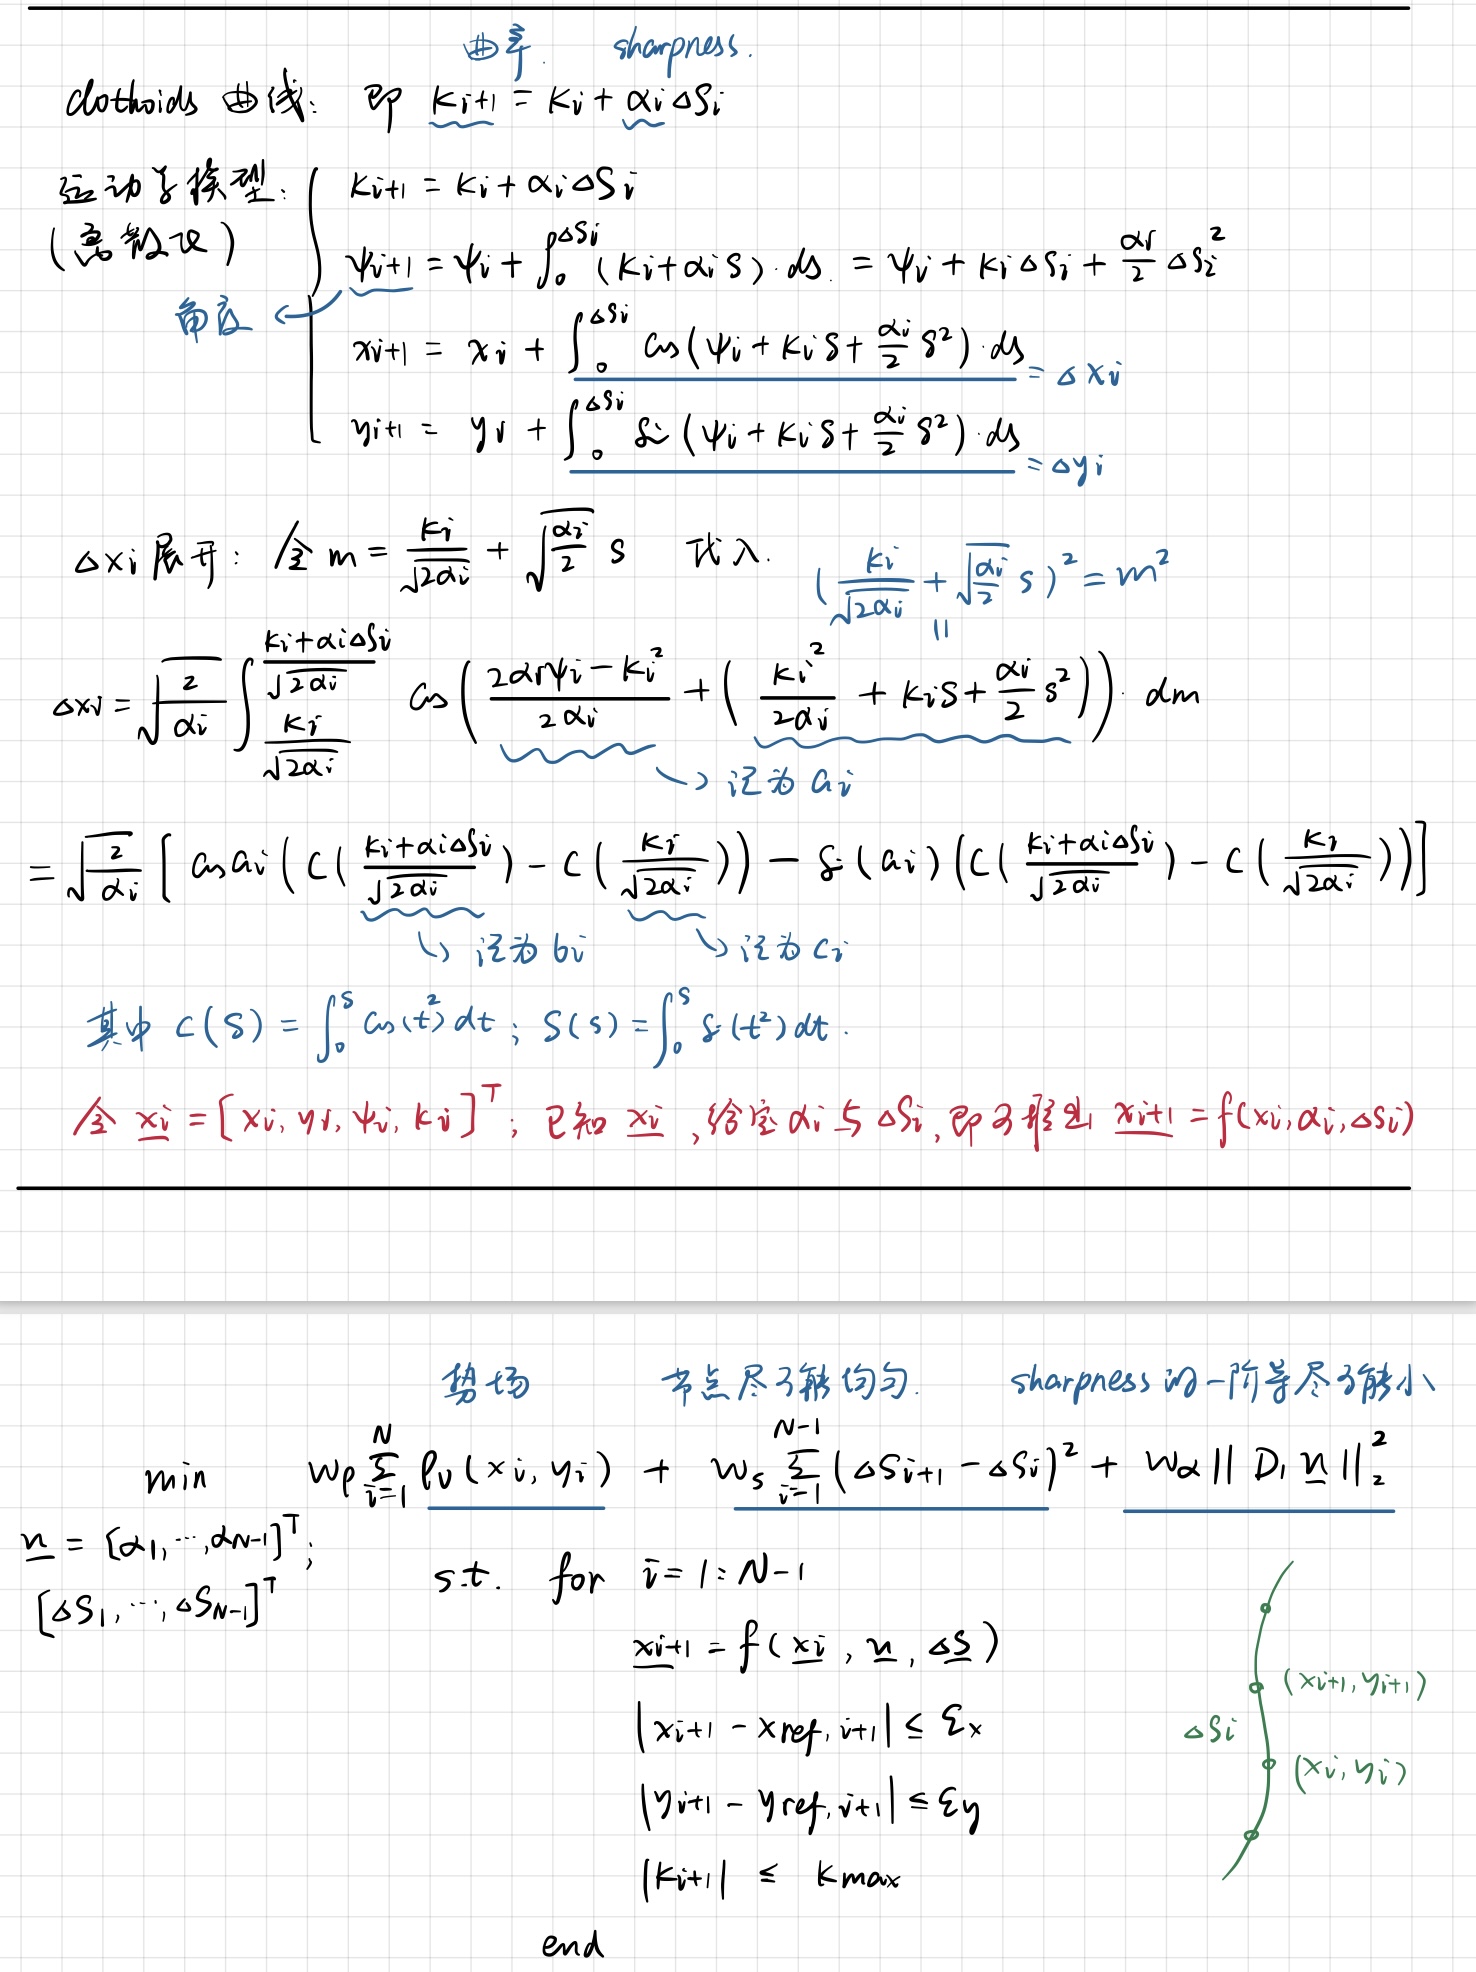 曲率. sharpness.
clothoids 曲线: 即 Ki+1 = Ki + αi ΔSi
运动学模型: Ki+1 = Ki + αi ΔSi
(离散化) ψi+1 = ψi + ∫₀^ΔSi (Ki + αi s)·ds. = ψi + Ki ΔSi + αi/2 ΔSi²
角度 ← xi+1 = xi + ∫₀^ΔSi cos(ψi + Ki s + αi/2 s²)·ds = Δxi
yi+1 = yi + ∫₀^ΔSi Si(ψi + Ki s + αi/2 s²)·ds = Δyi
Δxi 展开: 令 m = Ki/√(2αi) + √(αi/2) s 代入. (Ki/√(2αi) + √(αi/2) s)² = m²
=
Δxi = √(2/αi) ∫_{Ki/√(2αi)}^{(Ki+αiΔSi)/√(2αi)} cos( (2αiψi − Ki²)/(2αi) + ( Ki²/(2αi) + Ki s + αi/2 s² ) )· dm
→ 记为 ai
= √(2/αi) [ cos ai ( C( (Ki+αiΔSi)/√(2αi) ) − C( Ki/√(2αi) ) ) − Si(ai) ( C( (Ki+αiΔSi)/√(2αi) ) − C( Ki/√(2αi) ) ) ]
→ 记为 bi → 记为 ci
其中 C(s) = ∫₀^s cos(t²) dt; S(s) = ∫₀^s Si(t²) dt.
令 xi = [xi, yi, ψi, Ki]^T; 已知 xi, 给定 αi 与 ΔSi, 即可推出 xi+1 = f(xi, αi, Δsi)
势场 节点尽可能均匀. sharpness 的一阶导尽可能小
min wρ Σ_{i=1}^{N} ρv(xi, yi) + ws Σ_{i=1}^{N−1} (ΔSi+1 − ΔSi)² + wα || D1 u ||₂²
u = [α1, ···, αN−1]^T;
[ΔS1, ···, ΔSN−1]^T
s.t. for i = 1 : N−1
xi+1 = f(xi, u, ΔS)
|xi+1 − xref,i+1| ≤ εx
|yi+1 − yref,i+1| ≤ εy
|Ki+1| ≤ Kmax
end
(xi+1, yi+1)
ΔSi
(xi, yi)